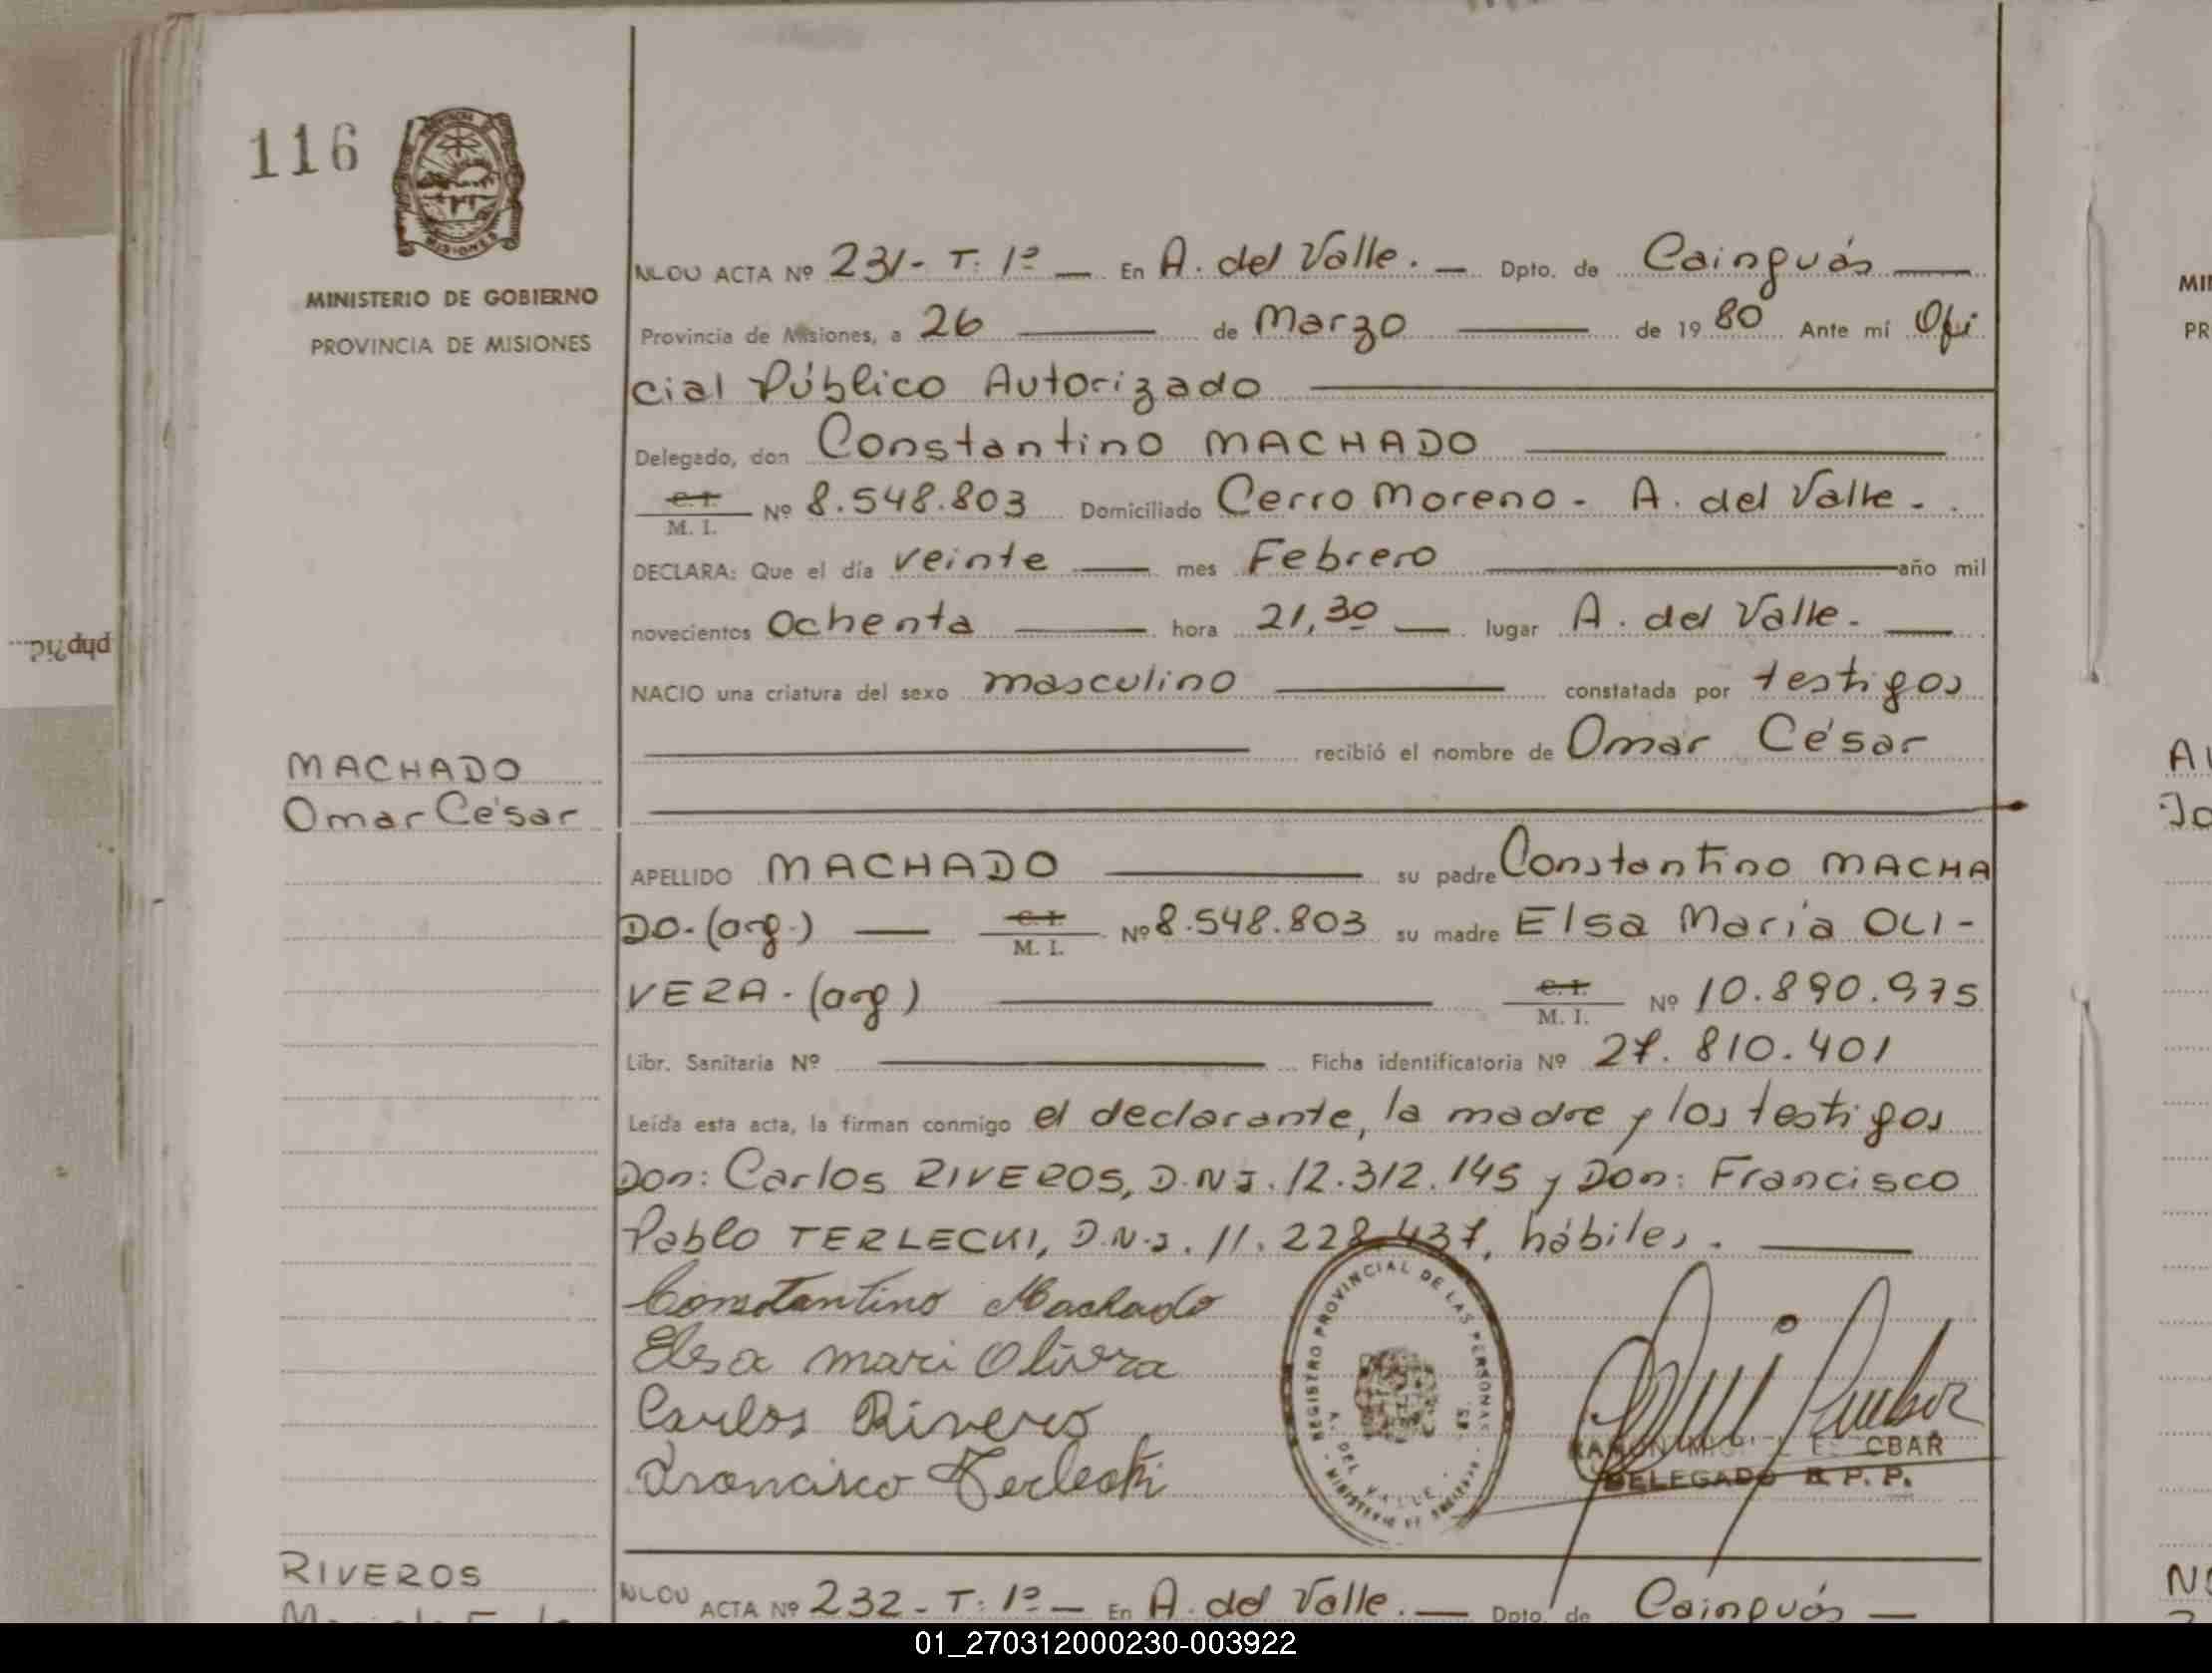 116
MISIONES
MINISTERIO DE GOBIERNO
PROVINCIA DE MISIONES
NLOU ACTA Nº 231- T: 1º — En A. del Valle. — Dpto. de Cainguás —
Provincia de Misiones, a 26 — de Marzo — de 1980 Ante mí Ofi
cial Público Autorizado —
Delegado, don Constantino MACHADO —
C.I. M. I. Nº 8.548.803 Domiciliado Cerro Moreno - A. del Valle -.
DECLARA: Que el día veinte — mes Febrero — año mil
novecientos Ochenta — hora 21,30 — lugar A. del Valle. —
NACIO una criatura del sexo masculino — constatada por testigos
— recibió el nombre de Omar César
MACHADO
Omar César
APELLIDO MACHADO — su padre Constantino MACHA
DO.(arg.) — C.I. M. I. Nº 8.548.803 su madre Elsa María OLI-
VERA.(arg) — C.I. M. I. Nº 10.890.975
Libr. Sanitaria Nº — Ficha identificatoria Nº 27.810.401
Leída esta acta, la firman conmigo el declarante, la madre y los testigos
Don: Carlos RIVEROS, D.N.I. 12.312.145 y Don: Francisco
Pablo TERLECKI, D.N.I. 11.228.437, hábiles. —
Constantino Machado
Elsa mari Olivera
Carlos Rivero
Francisco Terlecki
REGISTRO PROVINCIAL DE LAS PERSONAS
A. DEL VALLE
DELEGADO R. P. P.
RIVEROS
NLOU ACTA Nº 232 - T: 1º — En A. del Valle. — Dpto. de Cainguás —
php?id...
MI
PR
01_270312000230-003922